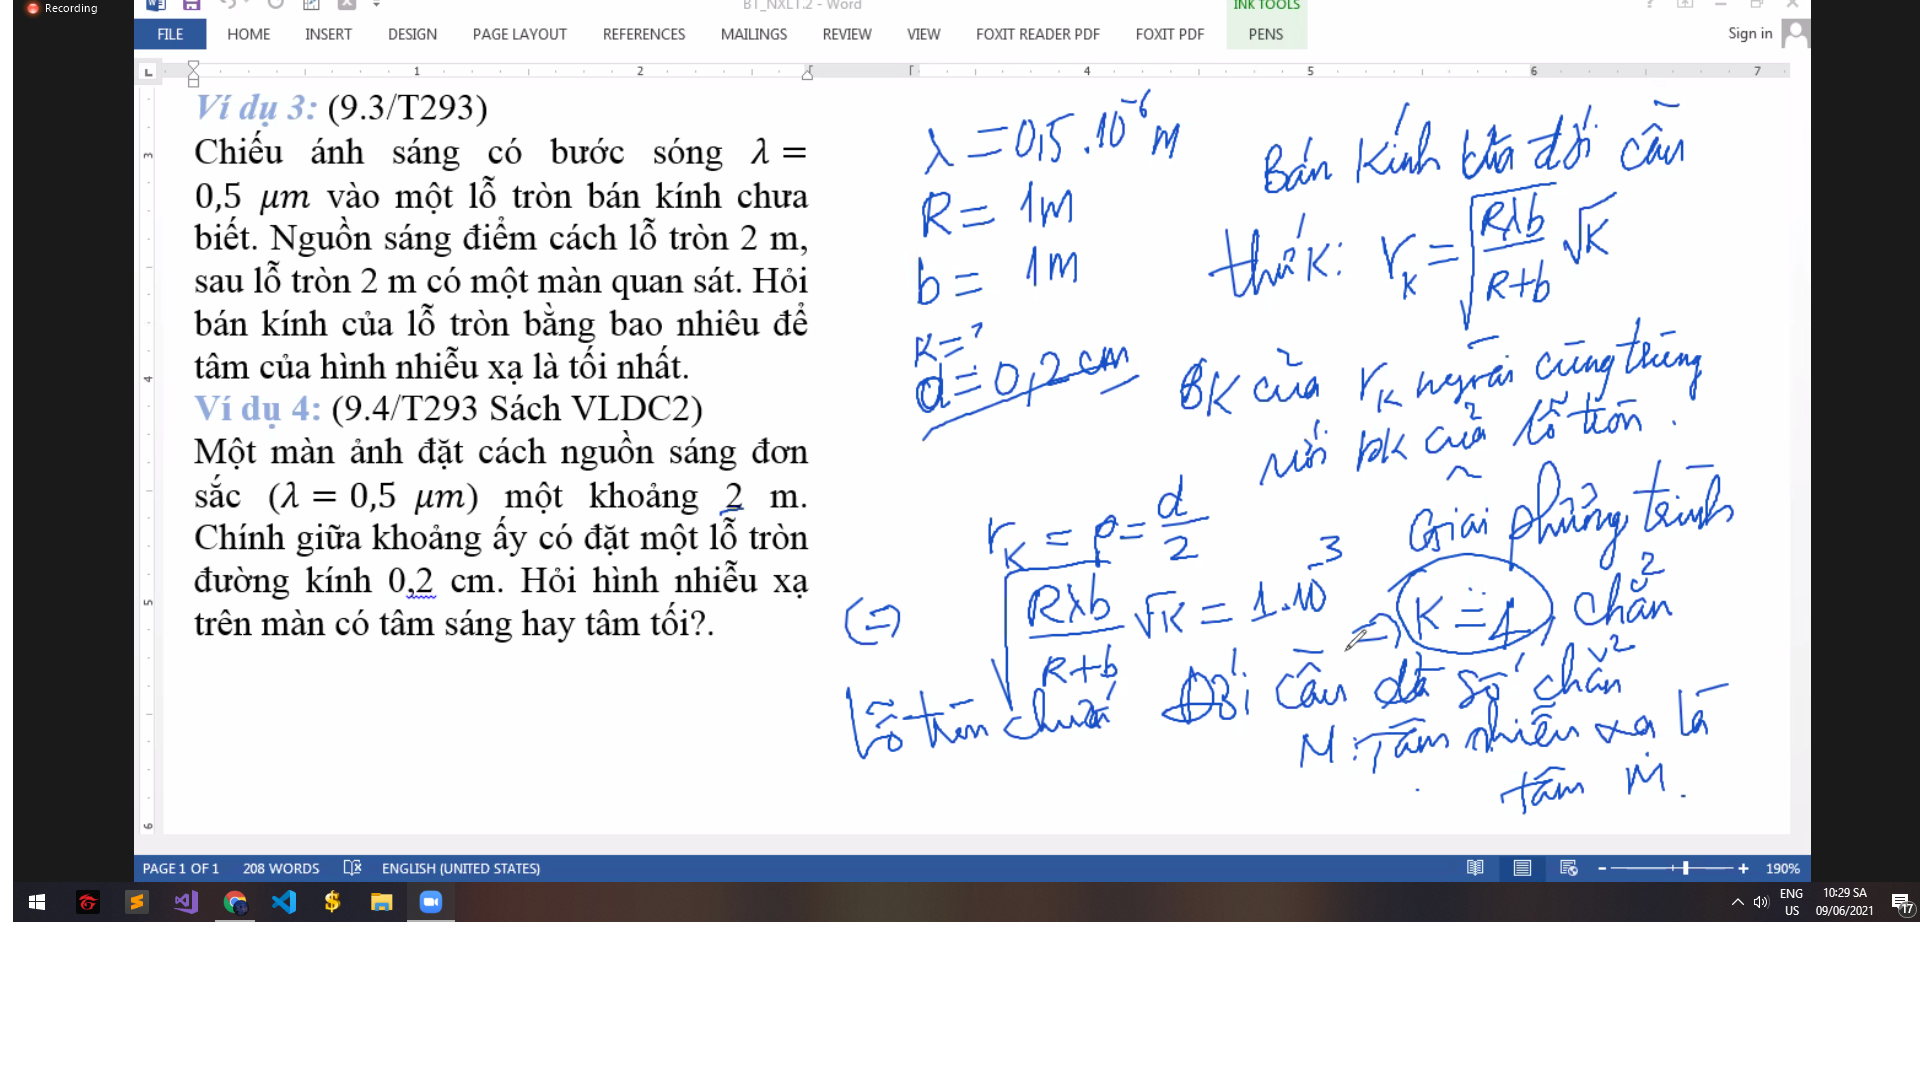 Recording
BT_NXLT.2 - Word
INK TOOLS
FILE HOME INSERT DESIGN PAGE LAYOUT REFERENCES MAILINGS REVIEW VIEW FOXIT READER PDF FOXIT PDF PENS Sign in
1 2 4 5 6 7
3
4
5
6
Ví dụ 3: (9.3/T293)
Chiếu ánh sáng có bước sóng λ =
0,5 μm vào một lỗ tròn bán kính chưa
biết. Nguồn sáng điểm cách lỗ tròn 2 m,
sau lỗ tròn 2 m có một màn quan sát. Hỏi
bán kính của lỗ tròn bằng bao nhiêu để
tâm của hình nhiễu xạ là tối nhất.
Ví dụ 4: (9.4/T293 Sách VLDC2)
Một màn ảnh đặt cách nguồn sáng đơn
sắc (λ = 0,5 μm) một khoảng 2 m.
Chính giữa khoảng ấy có đặt một lỗ tròn
đường kính 0,2 cm. Hỏi hình nhiễu xạ
trên màn có tâm sáng hay tâm tối?.
λ = 0,5.10⁻⁶ m
R = 1m
b = 1m
K = ?
d = 0,2 cm
Bán kính của đới cầu
thứ K: r_K = √(Rλb/(R+b)) √K
BK của r_K ngoài cùng trùng
với bk của lỗ tròn.
r_K = ρ = d/2
Giải phương trình
(=) √(Rλb/(R+b)) √K = 1.10⁻³
=) K = 4, chẵn
Lỗ tròn chứa Đới cầu là số chẵn
M: Tâm nhiễu xạ là
tâm
PAGE 1 OF 1 208 WORDS ENGLISH (UNITED STATES) 190%
ENG
US
10:29 SA
09/06/2021
17